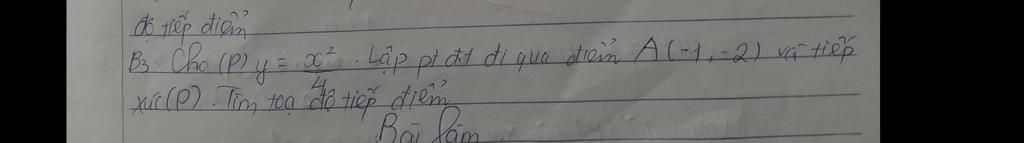 độ tiếp điểm
B3. Cho (P) y = x²/4. Lập pt đt đi qua điểm A(-1,-2) và tiếp
xúc (P). Tìm toạ độ tiếp điểm
Bài làm